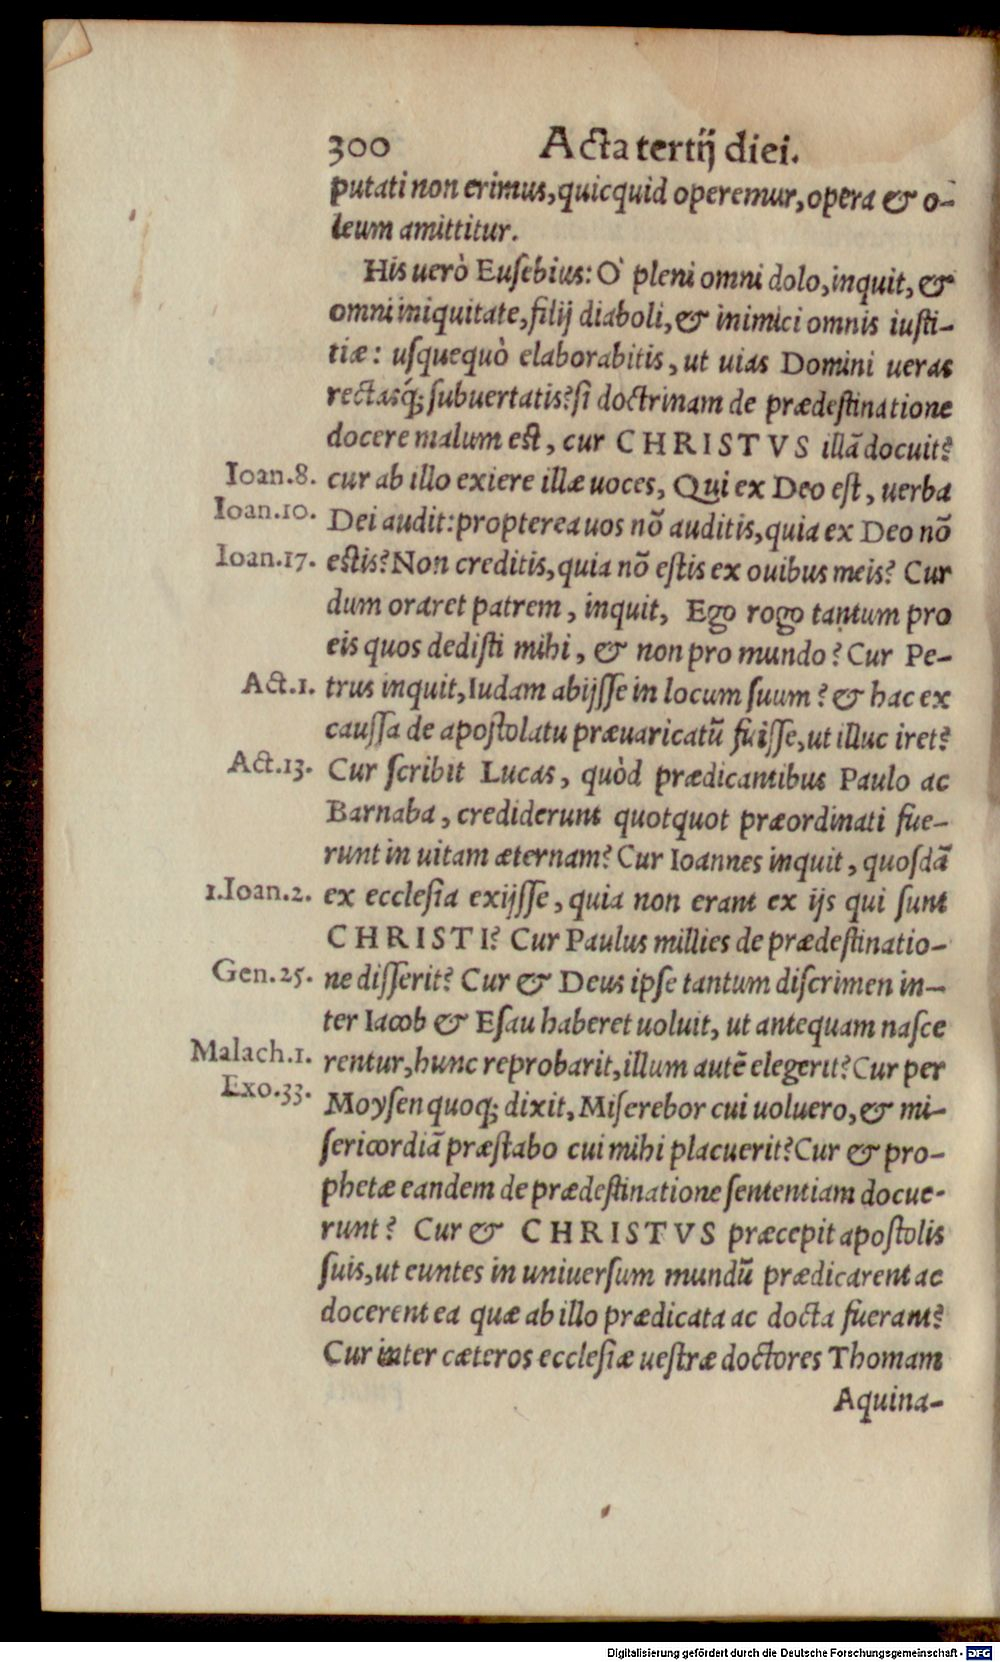 300 Acta tertij diei.
putati non erimus, quicquid operemur, opera & o-
leum amittitur.
His uerò Eusebius: O' pleni omni dolo, inquit, &
omni iniquitate, filij diaboli, & inimici omnis iusti-
tiæ: usquequò elaborabitis, ut uias Domini ueras
rectasq́; subuertatis? si doctrinam de prædestinatione
docere malum est, cur CHRISTVS illã docuit?
Ioan.8. cur ab illo exiere illæ uoces, Qui ex Deo est, uerba
Ioan.10. Dei audit: propterea uos nõ auditis, quia ex Deo nõ
Ioan.17. estis? Non creditis, quia nõ estis ex ouibus meis? Cur
dum oraret patrem, inquit, Ego rogo tantum pro
eis quos dedisti mihi, & non pro mundo? Cur Pe-
Act.1. trus inquit, Iudam abijsse in locum suum? & hac ex
caussa de apostolatu præuaricatũ fuisse, ut illuc iret?
Act.13. Cur scribit Lucas, quòd prædicantibus Paulo ac
Barnaba, crediderunt quotquot præordinati fue-
runt in uitam æternam? Cur Ioannes inquit, quosdã
1.Ioan.2. ex ecclesia exijsse, quia non erant ex ijs qui sunt
CHRISTI? Cur Paulus millies de prædestinatio-
Gen.25. ne disserit? Cur & Deus ipse tantum discrimen in-
ter Iacob & Esau haberet uoluit, ut antequam nasce
Malach.1. rentur, hunc reprobarit, illum autẽ elegerit? Cur per
Exo.33. Moysen quoq; dixit, Miserebor cui uoluero, & mi-
sericordiã præstabo cui mihi placuerit? Cur & pro-
phetæ eandem de prædestinatione sententiam docue-
runt? Cur & CHRISTVS præcepit apostolis
suis, ut euntes in uniuersum mundũ prædicarent ac
docerent ea quæ ab illo prædicata ac docta fuerant?
Cur inter cæteros ecclesiæ uestræ doctores Thomam
Aquina-
Digitalisierung gefördert durch die Deutsche Forschungsgemeinschaft - DFG